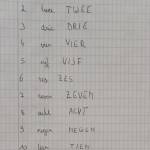 2 twee TWEE
3 drie DRIE
4 vier VIER
5 vijf VIJF
6 zes ZES
7 zeven ZEVEN
8 acht ACHT
9 negen NEGEN
10 tien TIEN